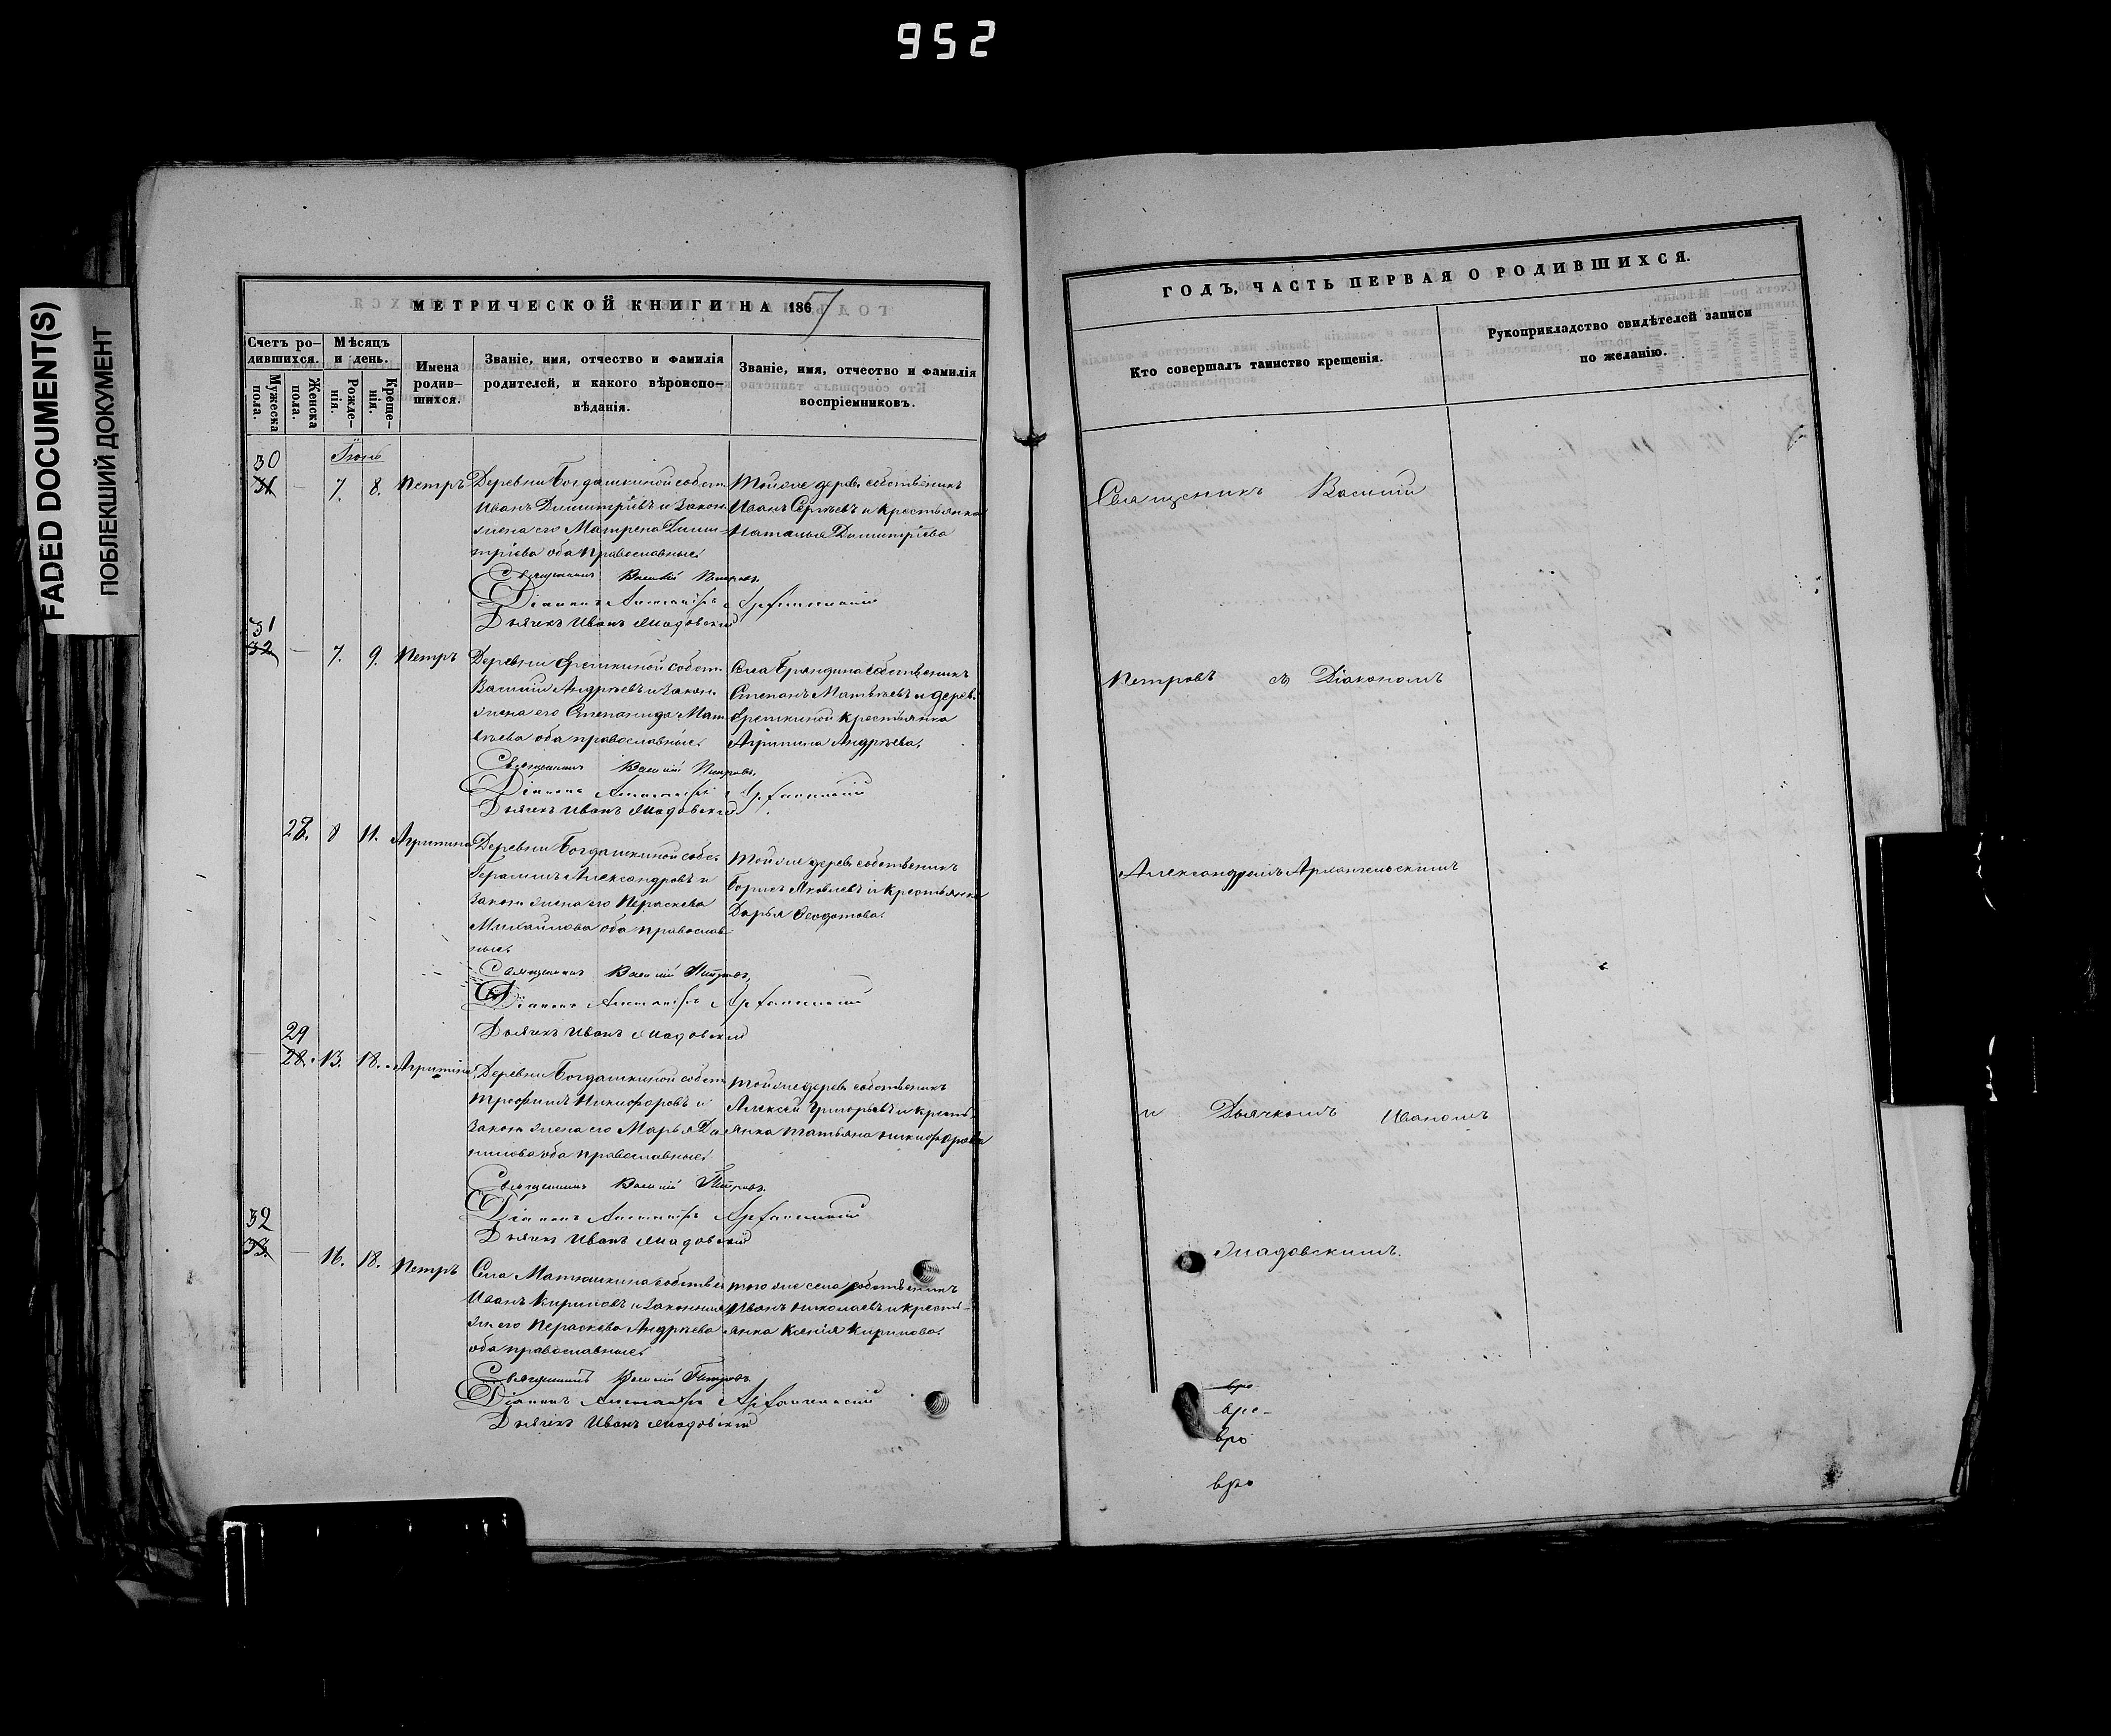 952
FADED DOCUMENT(S)
ПОБЛЕКШИЙ ДОКУМЕНТ
МЕТРИЧЕСКОЙ КНИГИ НА 1867
Счетъ ро-
дившихся.
Мужеска
пола.
Женска
пола.
Мѣсяцъ
и день.
Рожде-
нія.
Креще-
нія.
Имена
родив-
шихся.
Званіе, имя, отчество и фамилія
родителей, и какого вѣроиспо-
вѣданія.
Званіе, имя, отчество и фамилія
воспріемниковъ.
30
31
7.
8.
Петръ
Деревни Богдашкиной собст.
Иванъ Димитріевъ и закон.
жена его Матрена Дими-
тріева оба православные.
Тойже дерев. собственникъ
Иванъ Сергѣевъ и крестьянка
Наталья Димитріева
Священникъ Василій Петровъ.
Діаконъ Александръ Архангельскій
Дьячекъ Иванъ
31
32
7.
9.
Петръ
Деревни собст.
Василій Андрѣевъ и закон.
жена его Степанида Мат-
вѣева оба православные.
Села собственникъ
Степанъ Матвѣевъ и дерев.
крестьянка
Агрипина Андрѣева.
Священникъ Василій Петровъ.
Діаконъ Александръ Архангельскій
Дьячекъ Иванъ
28.
8
11.
Агрипина
Деревни Богдашкиной собс.
Герасимъ Александровъ и
закон. жена его Параскева
Михайлова оба православ-
ные.
Тойже дерев. собственникъ
Борисъ Яковлевъ и крестьянка
Дарья Ѳеодотова.
Священникъ Василій Петровъ.
Діаконъ Александръ Архангельскій
Дьячекъ Иванъ
29
28.
13.
18.
Агрипина
Деревни Богдашкиной собст.
Трофимъ Никифоровъ и
закон. жена его Марья Да-
нилова оба православные.
Тойже дерев. собственникъ
Алексѣй Григорьевъ и кресть-
янка Татьяна Никифорова
Священникъ Василій Петровъ.
Діаконъ Александръ Архангельскій
Дьячекъ Иванъ
32
33.
16.
18.
Петръ
Села Матюшкина собствен.
Иванъ Кириловъ и законная
ж. его Параскева Андрѣева
оба православные.
того же села собственникъ
Иванъ Николаевъ и кресть-
янка Ксенія Кирилова.
Священникъ Василій Петровъ.
Діаконъ Александръ Архангельскій
Дьячекъ Иванъ
ГОДЪ, ЧАСТЬ ПЕРВАЯ О РОДИВШИХСЯ.
Кто совершалъ таинство крещенія.
Рукоприкладство свидѣтелей записи
по желанію.
Священникъ Василій
Петровъ съ Діакономъ
Александромъ Архангельскимъ
и Дьячкомъ Иваномъ